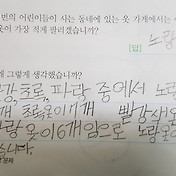 번의 어린이들이 사는 동네에 있는 옷 가게에서는
옷이 가장 적게 팔리겠습니까?
[답] 노랑
왜 그렇게 생각했습니까?
강,초로,파락 중에서 노랑
개 초록옷이 7개 빨강색옷
랑옷이 6개 임으로 노랑옷이
습니다.